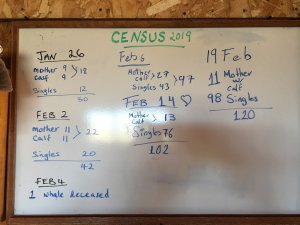 CENSUS 2019
JAN 26
Mother 9 > 18
Calf 9
Singles 12
30
FEB 2
Mother 11 > 22
Calf 11
Singles 20
42
FEB 4
1 whale deceased
Feb 6
Mother/Calf > 27
Singles 43 > 97
FEB 14 ♡
Mother Calf > 13
Singles 76
102
19 Feb
11 Mother w/ Calf
98 Singles
120